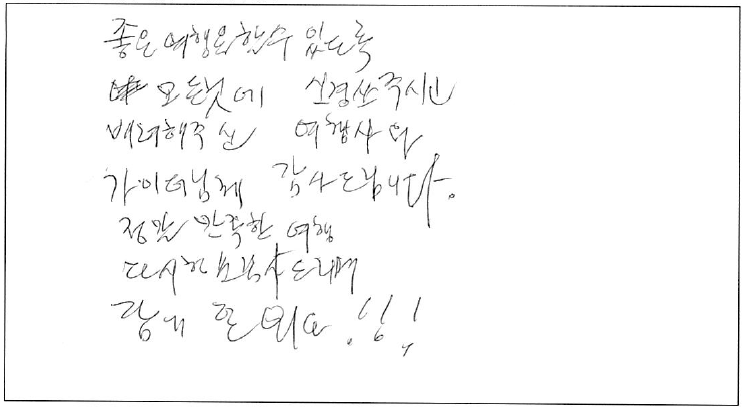 좋은 여행을 할 수 있도록
모든것에 신경써주시고
배려해주신 여행사와
가이더님께 감사드립니다.
정말 만족한 여행
다시한번 감사드리며